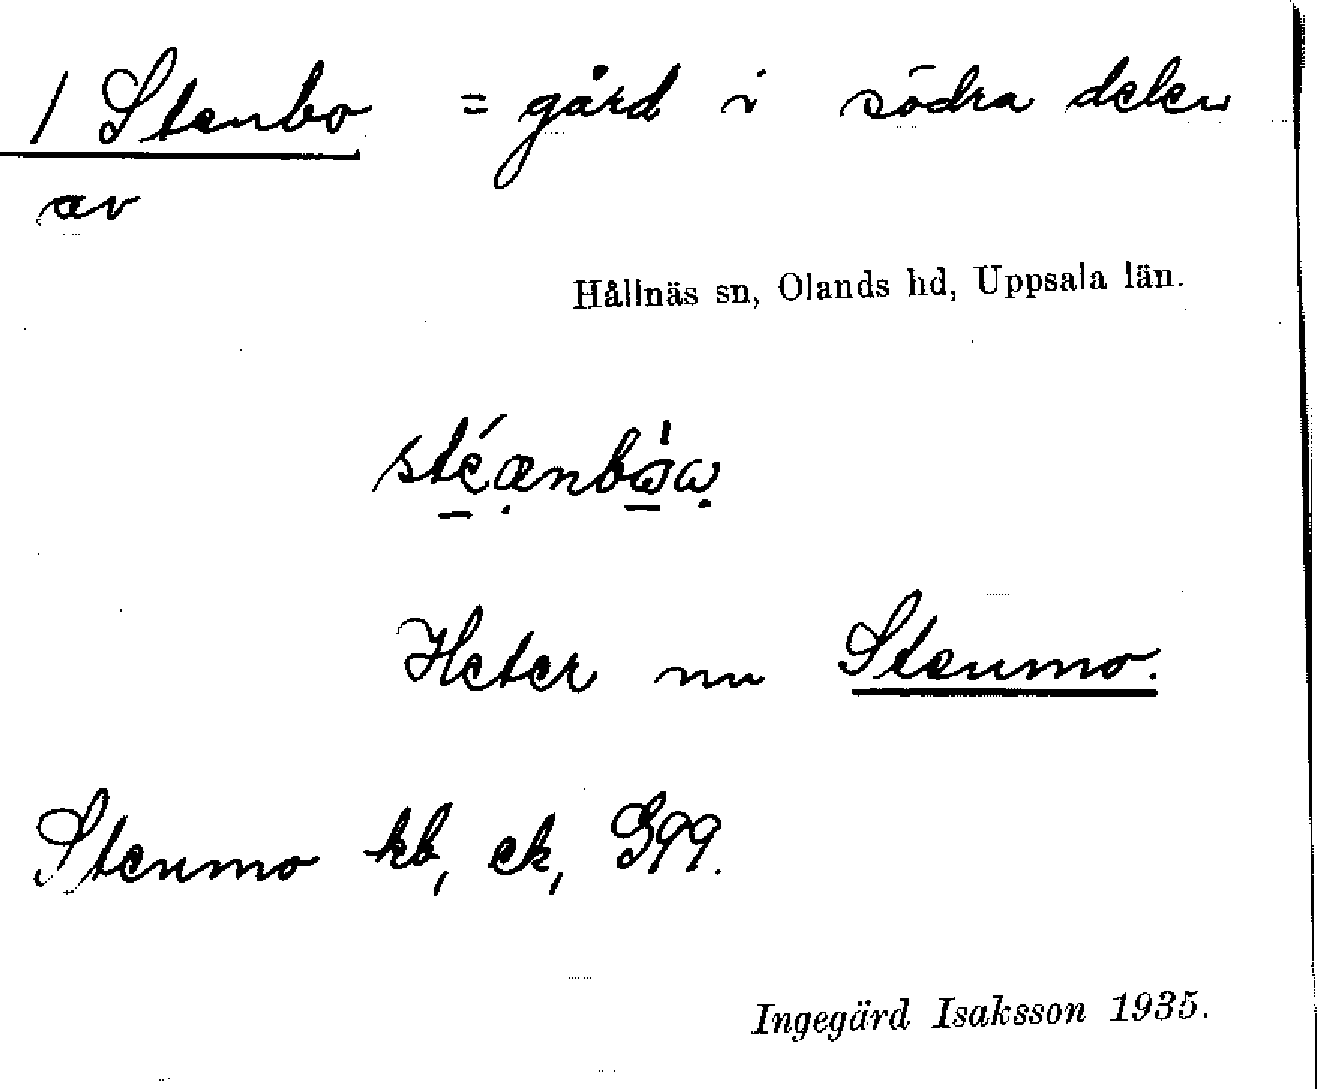 / Stenbo = gård i södra delen
av
Hållnäs sn, Olands hd, Uppsala län.
Heter nu Stenmo.
Stenmo kb, ek, G99.
Ingegärd Isaksson 1935.